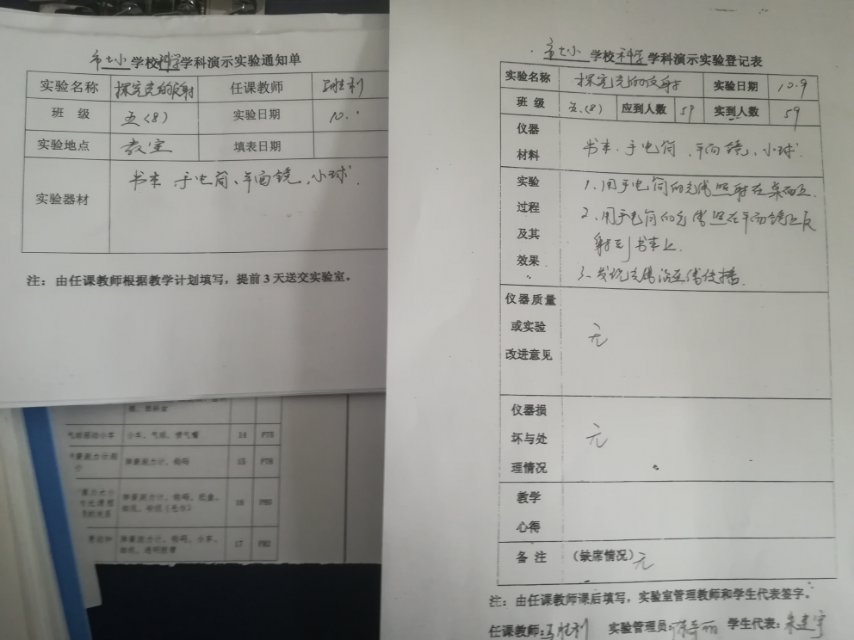 市七小学校科学学科演示实验通知单
实验名称 探究光的反射 任课教师
班 级 五(8) 实验日期 10.
实验地点 教室 填表日期
实验器材 书本 手电筒、平面镜、小球
注：由任课教师根据教学计划填写，提前3天送交实验室。
小车、气球、喷气嘴 14 P75
弹簧测力计、钩码 15 P78
16
17 P82
市七小学校科学学科演示实验登记表
实验名称 探究光的反射 实验日期 10.9
班 级 五(8) 应到人数 59 实到人数 59
仪器
材料
书本、手电筒、平面镜、小球
实验
过程
及其
效果
1.用手电筒的光照射在桌面上.
2.用手电筒的光照在平面镜上反
射到书本上.
3.发现光沿直线传播.
仪器质量
或实验
改进意见
无
仪器损
坏与处
理情况
无
教学
心得
备 注 (缺席情况)无
注：由任课教师课后填写，实验室管理教师和学生代表签字。
任课教师: 实验管理员: 学生代表: